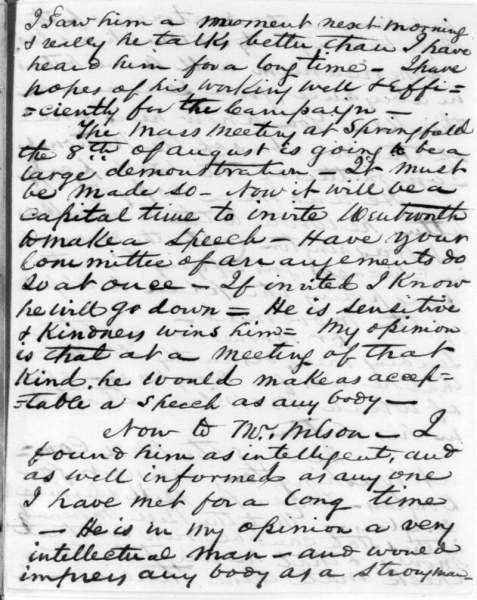 I saw him a moment next morning
& really he talks better than I have
heard him for a long time – I have
hopes of his working well & effi=
=ciently for the Campaign –
The Mass Meeting at Springfield
the 8th of august is going to be a
large demonstration – It must
be made so – Now it will be a
capital time to invite Wentworth
to make a speech – Have your
Committee of arrangements do
so at once – If invited I know
he will go down = He is sensitive
& Kindness wins him = My opinion
is that at a meeting of that
Kind, he would make as accep=
=table a speech as any body –
Now to Mr. Wilson – I
found him as intelligent, and
as well informed as any one
I have met for a long time
– He is in my opinion a very
intellectual man – and would
impress any body as a strong man –